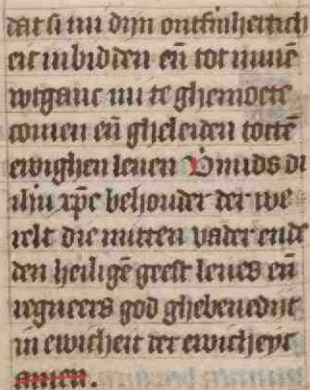 dat si mi dijn ontfinherticheit
eit inbidden en̄ tot minē
wtganc mi te ghemoete
comen en̄ gheleiden tottē
ewighen leuen Vmids di
ihū xpē behouder der we
relt die mitten vader ende
den heiligē geest leues en̄
regneers god ghebenedijt
in ewicheit der ewicheyt
amen.